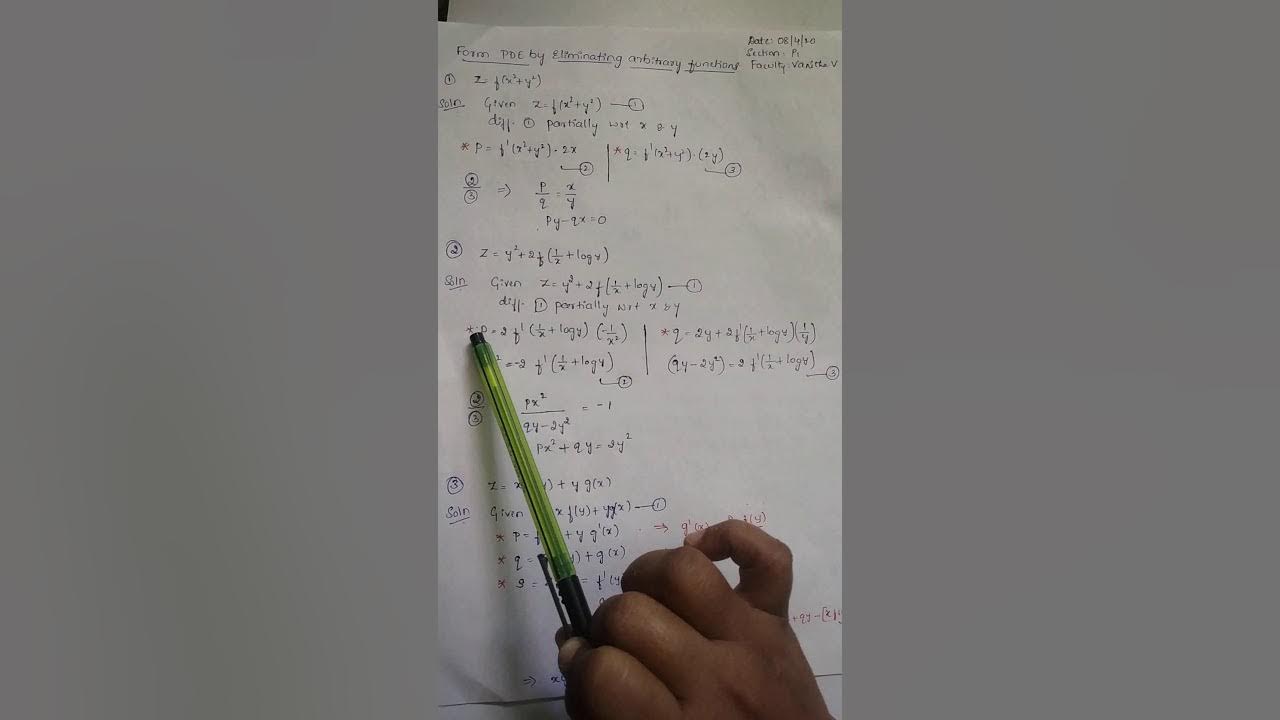 Date: 08/4/20
Section: P1
Faculty: Vanitha V
Form PDE by Eliminating arbitrary functions
① Z = f(x²+y²)
Soln Given Z = f(x²+y²) —①
diff. ① partially wrt x & y
* P = f'(x²+y²)·2x —② | * q = f'(x²+y²)·(2y) —③
②/③ ⇒ P/q = x/y
Py-qx=0
② Z = y²+2f(1/x + logy)
Soln Given Z = y²+2f(1/x + logy) —①
diff. ① partially wrt x & y
* P = 2 f'(1/x + logy) (-1/x²) | * q = 2y + 2f'(1/x + logy)(1/y)
² = -2 f'(1/x + logy) —② | (qy-2y²) = 2 f'(1/x + logy) —③
②/③ px²/(qy-2y²) = -1
px² + qy = 2y²
③ Z = x y) + y g(x)
Soln Given x f(y) + yg(x) —①
* P = f + y g'(x) ⇒ g'(x) f(y)
* q = y) + g(x)
* s = = f'(y
+ qy - [x f(y
⇒ x